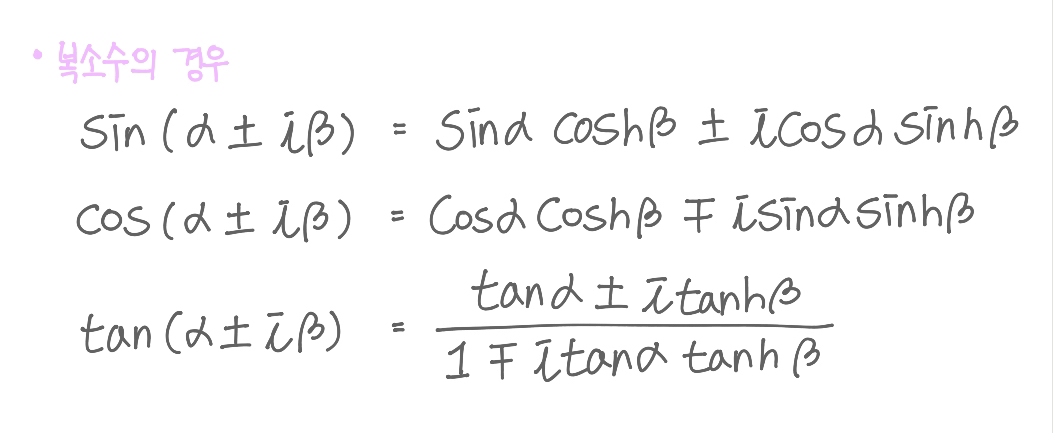 • 복소수의 경우
sin(α ± iβ) = sinα coshβ ± icosα sinhβ
cos(α ± iβ) = cosα coshβ ∓ isinα sinhβ
tanα ± itanhβ
tan(α ± iβ) = 
1 ∓ itanα tanhβ